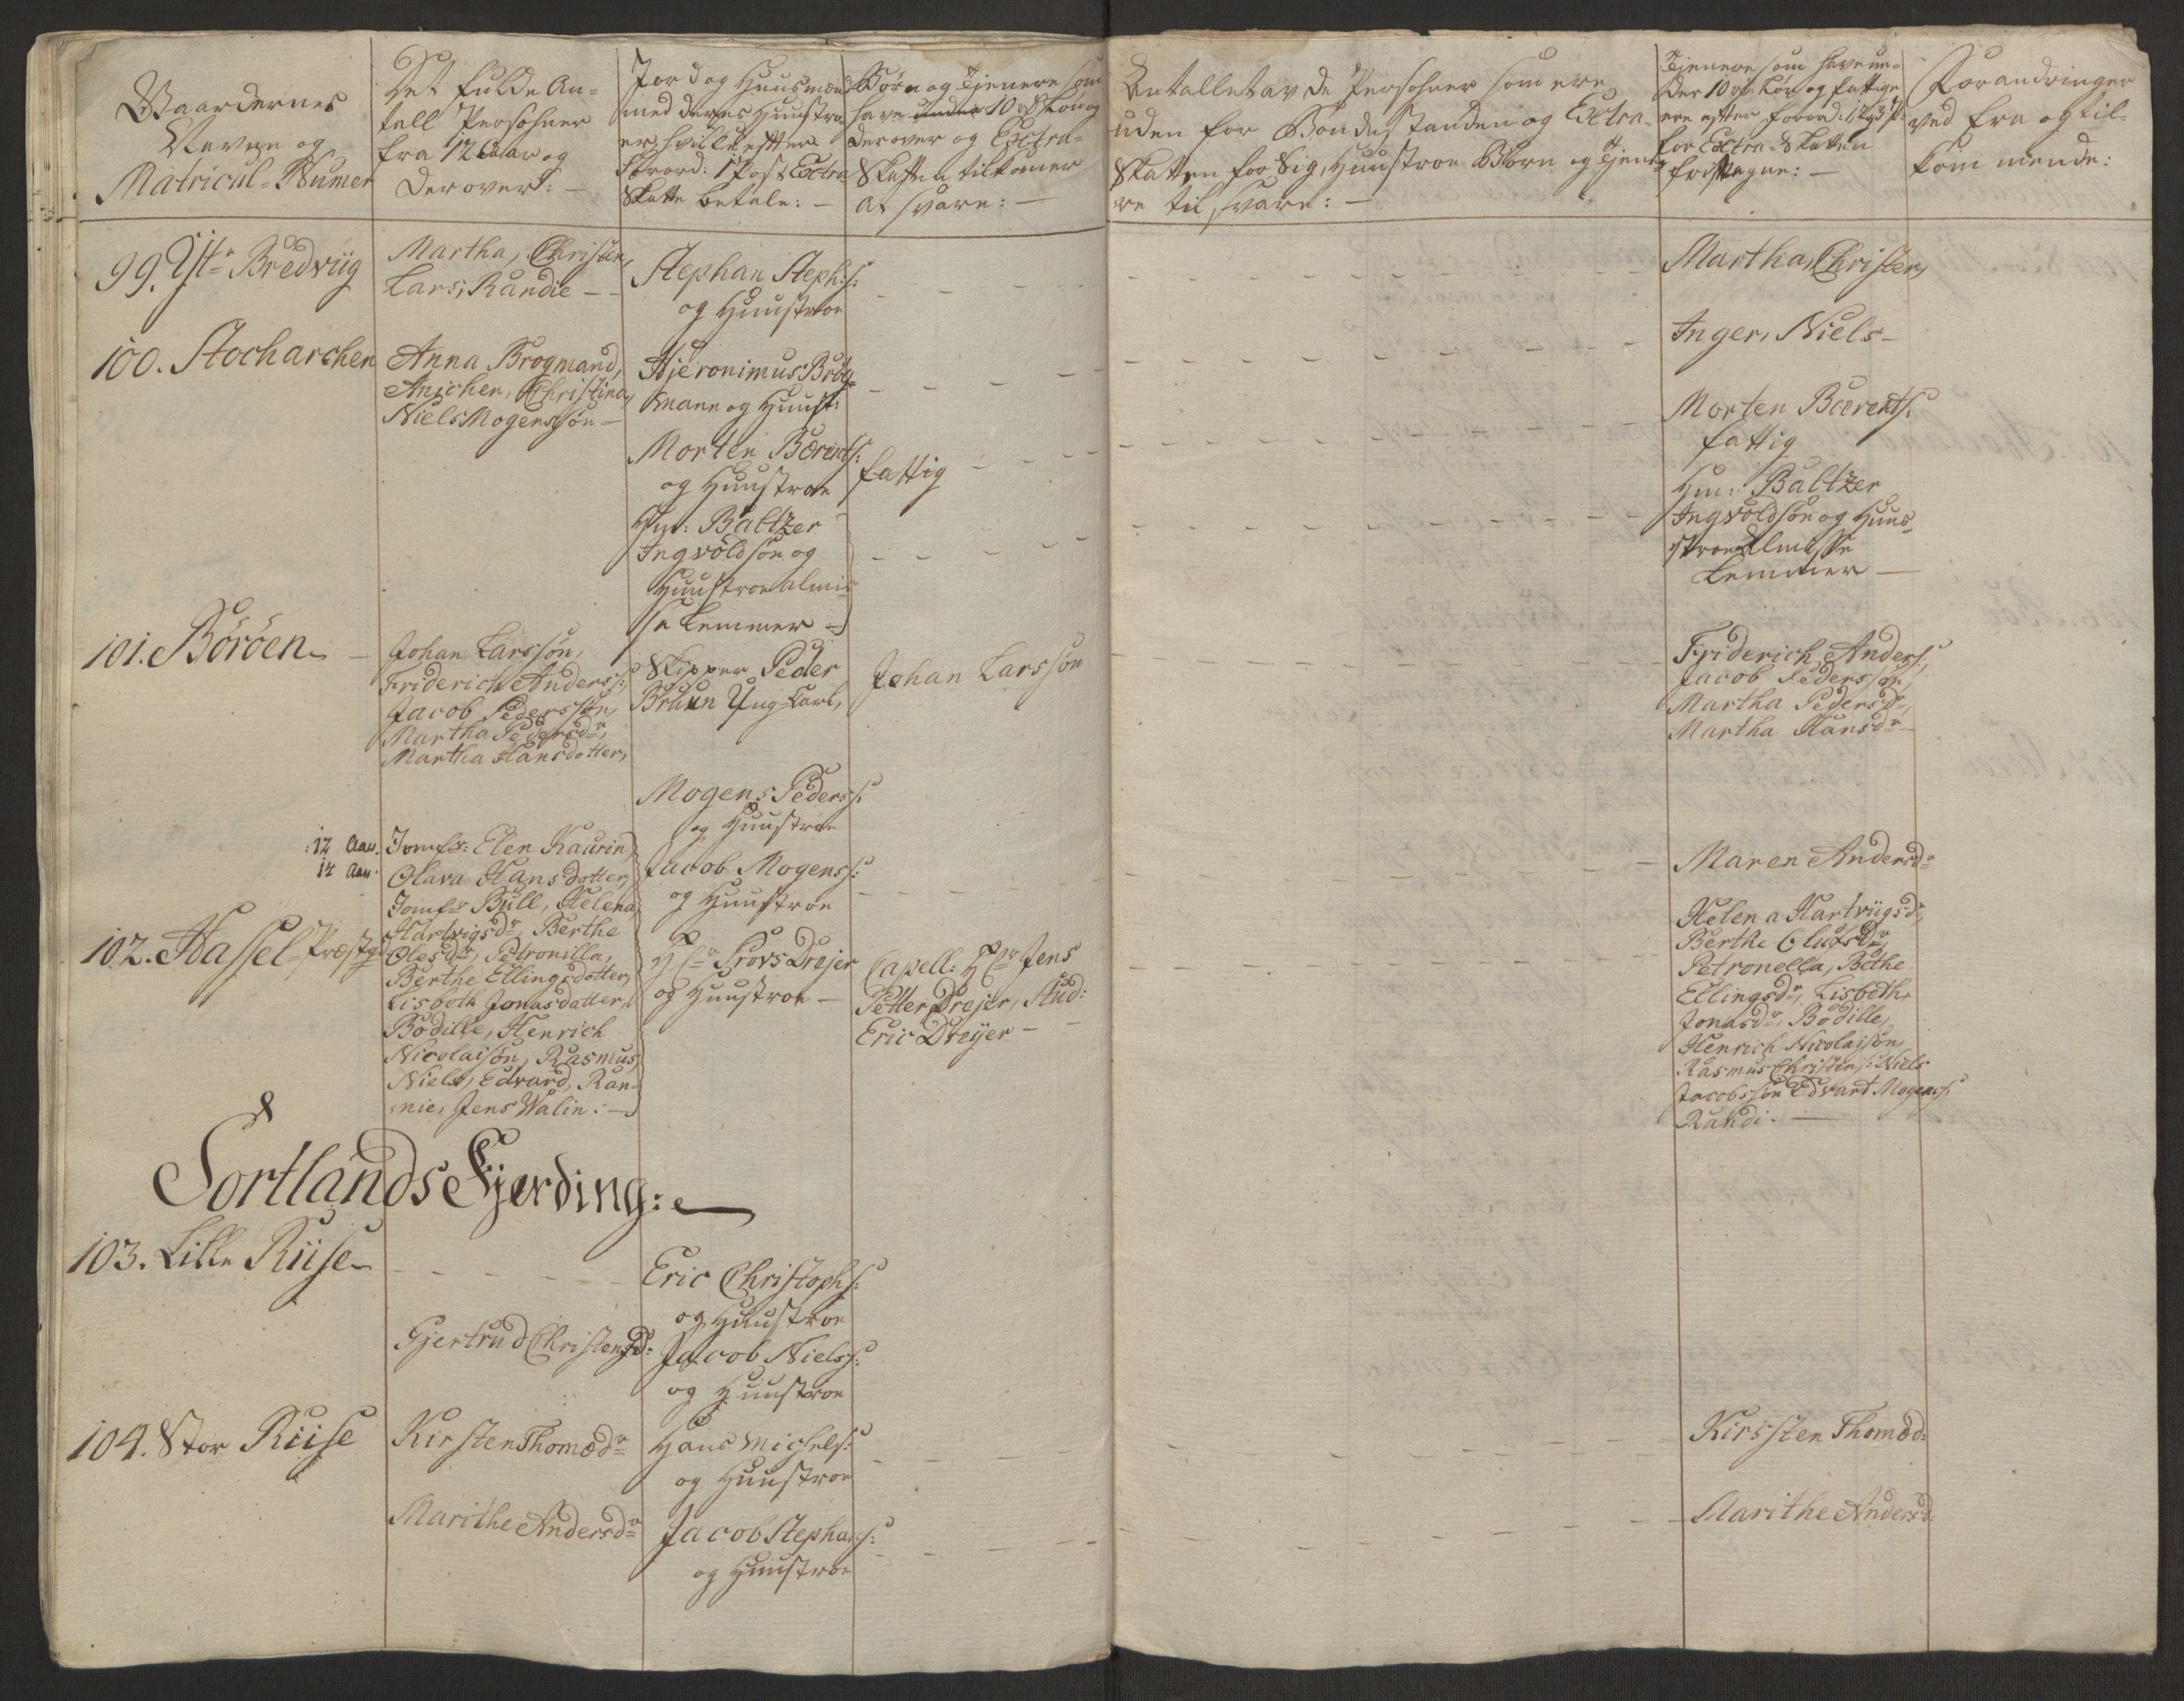 Gaardernes
Navne og
Matricul=Numer
Det fulde An-
tall Persohner
fra 12 Aar og
derover: —
Jord og Huusmænd
med deres Huustroer
betale: —
Børn og Tjenere som
have under 10 rd Løn og
derover og Extra-
Skatten tilkomer
at svare: —
Antallet av de Persohner som ere
uden for Bondestanden og Extra-
Skatten for Sig, Huustroe Børn og Tjene-
re til svare: —
Tjenere som have un-
der 10 rd Løn og fattige
for Extra-Skatten
fritagne: —
Forandringer
ved fra og til-
kommende:
99. Ytr Bredviig
Martha, Christen,
Lars, Randie —
Stephan Steph:s:
og Huustroe
Martha, Christen,
100. Stocharchen
Anna Brogmand,
Anichen, Christina,
Niels Mogenssøn —
Hjeronimus Brög-
mann og Huust:
Inger, Niels —
Morten Bærents:
og Huustroe
fattig
Morten Bærents:
fattig
Hm: Baltzer
Ingvoldsøn og
Huustroe almis-
se Lemmer —
Hm: Baltzer
Ingvoldsøn og Huus-
stroe Almisse
Lemmer —
101. Böröen —
Johan Larssøn,
Friderich Anders:s:,
Jacob Pederssøn,
Martha Pedersdr,
Martha Hansdotter,
Skipper Peder
Bruun Ung-Carl,
Johan Larssøn
Friderich Anders:,
Jacob Pederssøn,
Martha Pedersdr,
Martha Hansdr —
Mogens Peders:
og Huustroe
12 Aar. Jomfr: Elen Kaurin,
12 Aar. Olava Hansdotter,
Jacob Mogens:
og Huustroe
Maren Andersdr
102. Hassel-Præstgd
Jomfr Bull, Helena
Hartvigsdr, Berthe
Olesdr, Petronilla,
Berthe Ellingsdotter,
Lisbeth Jonasdatter,
Bodille, Henrich
Nicolaisøn, Rasmus,
Niels, Edvard, Ran-
nie, Jens Walin: —
Hr Provs Drejer
og Huustroe —
Capell: Hr Jens
Petter Drejer, Stud:
Eric Dreyer —
Helena Hartviigsdr,
Berthe Olufsdr,
Petronella, Bethe
Ellingsdr, Lisbeth
Jonasdr, Bodille,
Henrich Nicolaisøn,
Rasmus Christens: Niels
Jacobssøn Edvart Mogens:
Randi. —
Sortlands Fjerding: —
103. Lille Riise —
Eric Christoph:
og Huustroe
Gjertrud Christensd:
Jacob Niels:
og Huustroe
104. Stor Riise
Kirsten Thomædr
Hans Michels:
og Huustroe
Kirssten Thomæd:
Marithe Andersdr
Jacob Stephans:
og Huustroe
Marithe Andersd: